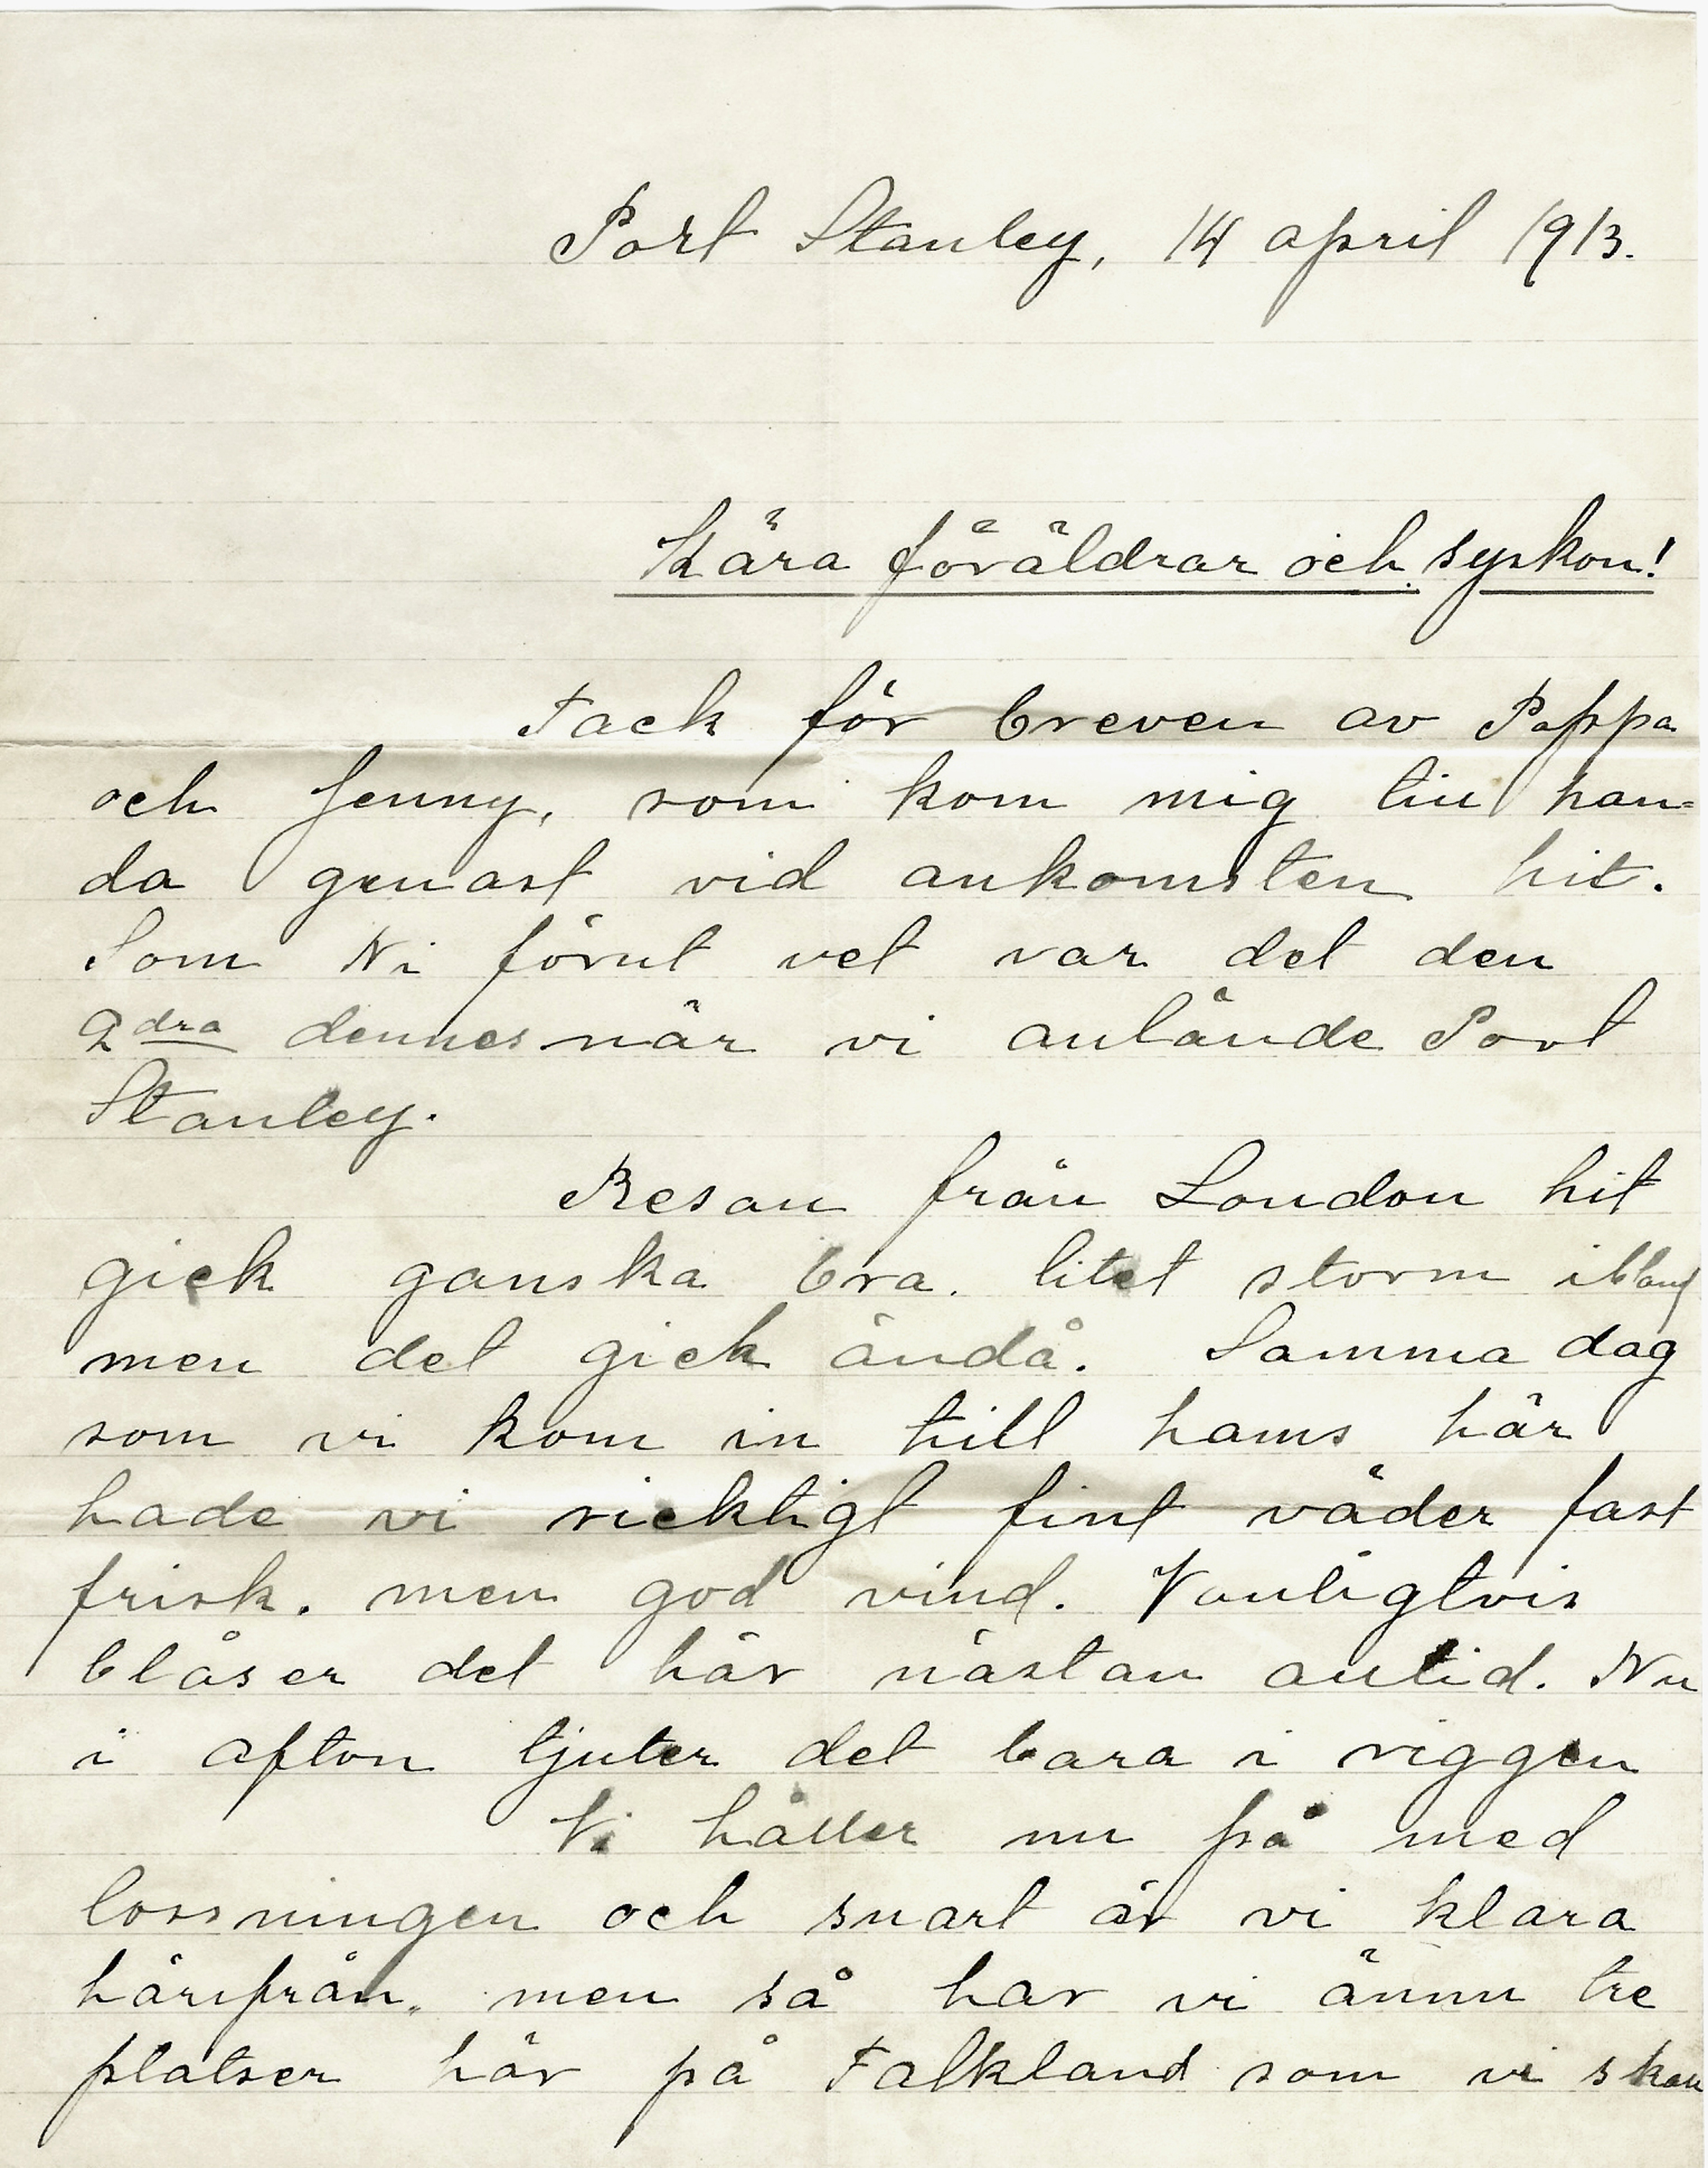 Port Stanley, 14 april 1913.
Kära föräldrar och syskon!
Tack för breven av Pappa
och Jenny, som kom mig till han=
da genast vid ankomsten hit.
Som Ni förut vet var det den
2dra dennes när vi anlände Port
Stanley.
Resan från London hit
gick ganska bra. litet storm ibland
men det gick ändå. Samma dag
som vi kom in till hams här
hade vi ricktigt fint väder fast
frisk. men god vind. Vanligtvis
blåser det här nästan alltid. Nu
i afton tjuter det bara i riggen
Vi håller nu på med
lossningen och snart är vi klara
härifrån. men så har vi ännu tre
platser här på Falkland som vi skall